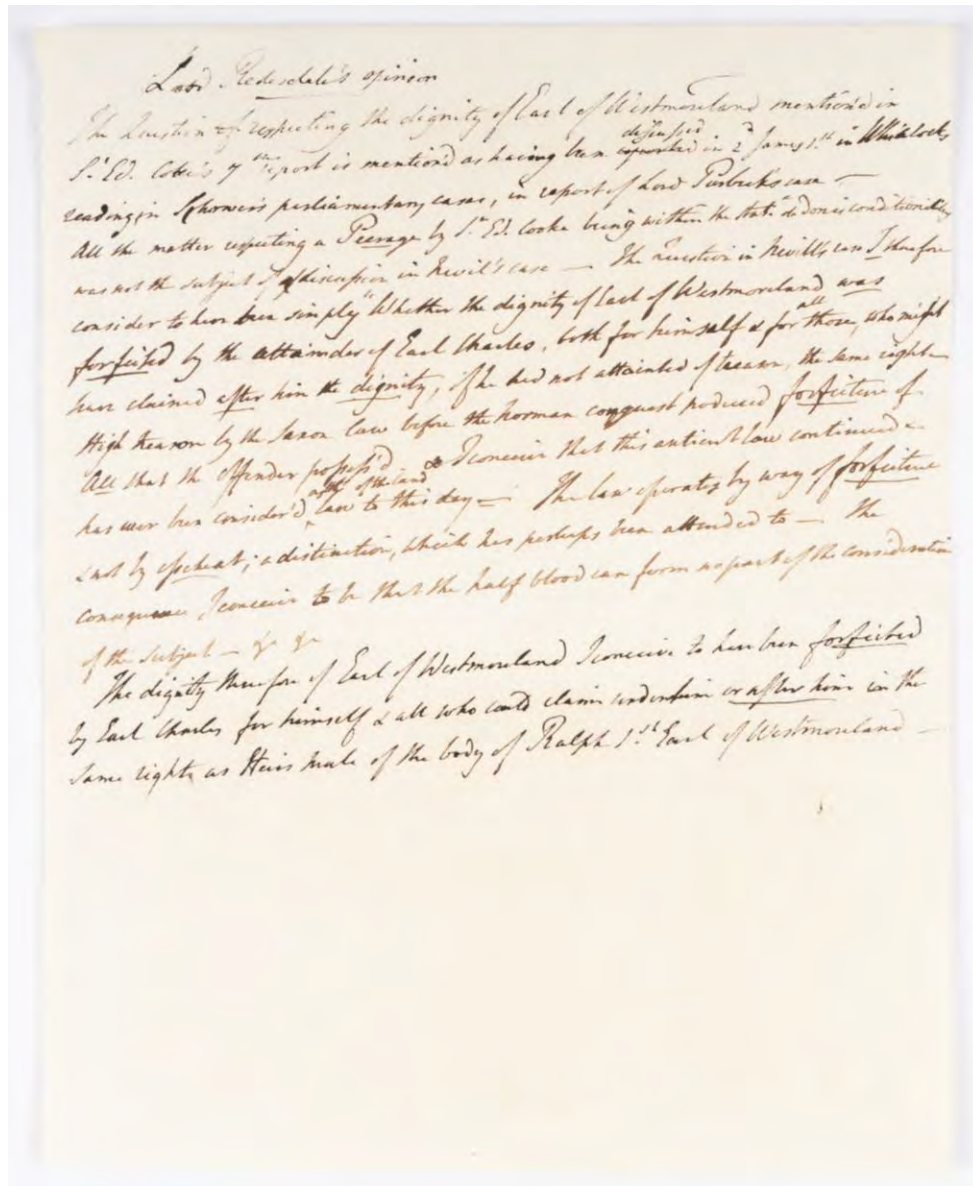 Lord Redesdale's opinion
The Question respecting the dignity of Earl of Westmoreland mention'd in
Sr. Ed. Coke's 7th report is mention'd as having been discussed in 2d James 1st in Whitelocks
reading, in Showers's parliamentary cases, in report of Lord Purbeck's case —
All the matter respecting a Peerage by Sr. Ed. Cooke being within the Stat. de donis conditionalibus
was not the subject of discussion in Nevil's case — The Question in Nevill's case I therefore
consider to have been simply "Whether the dignity of Earl of Westmoreland was
forfeited by the attainder of Earl Charles, both for himself & for all those, who might
have claimed after him the dignity, if he had not attainted of treason, the same right —
High treason by the Saxon law before the Norman conquest produced forfeiture of
All that the Offender possess'd I conceive that this antient law continued &
has ever been consider'd as the law of the land to this day — The law operates by way of forfeiture
& not by escheat; a distinction, which has perhaps been attended to — The
consequence I conceive to be that the half blood can form no part of the consideration
of the subject — & &
The dignity therefore of Earl of Westmoreland I conceive to have been forfeited
by Earl Charles for himself & all who could claim under him or after him in the
same right, as Heirs male of the body of Ralph 1st Earl of Westmoreland —